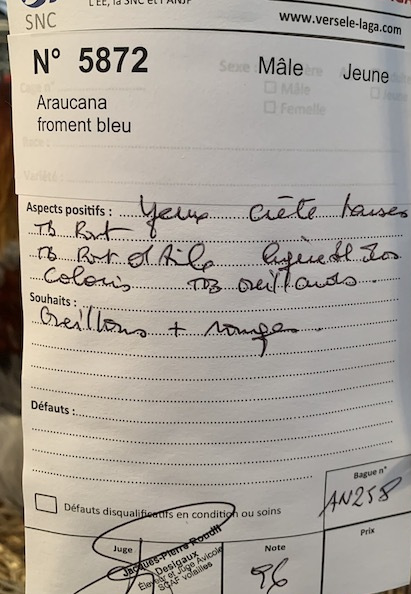 L'EE, la SNC et l'ANJF
SNC
www.versele-laga.com
N° 5872 Mâle Jeune
Mâle
Femelle
Araucana
froment bleu
Race :
Variété :
Aspects positifs : Yeux crête
TB
TB d'Aile ligne dos
Coloris TB oreillons.
Souhaits :
Oreillons + rouges.
Défauts :
Défauts disqualificatifs en condition ou soins
Bague n°
AN258
Juge
Jacques-Pierre Roudil
Desigaux
Éleveur et Juge Avicole
SCAF volailles
Note
96
Prix